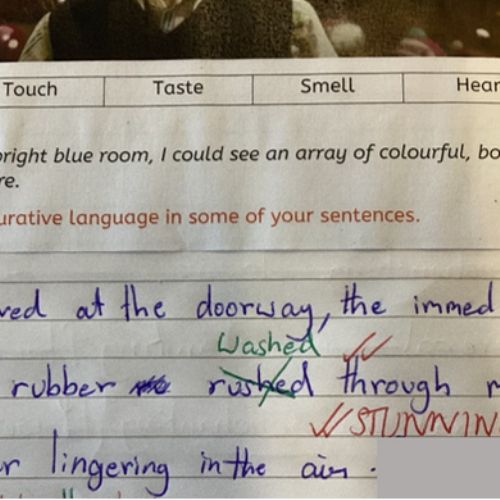 Touch Taste Smell Hear
bright blue room, I could see an array of colourful, bo
re.
urative language in some of your sentences.
ved at the doorway, the immed
Washed
rubber rushed through
STUNNIN
r lingering in the air.